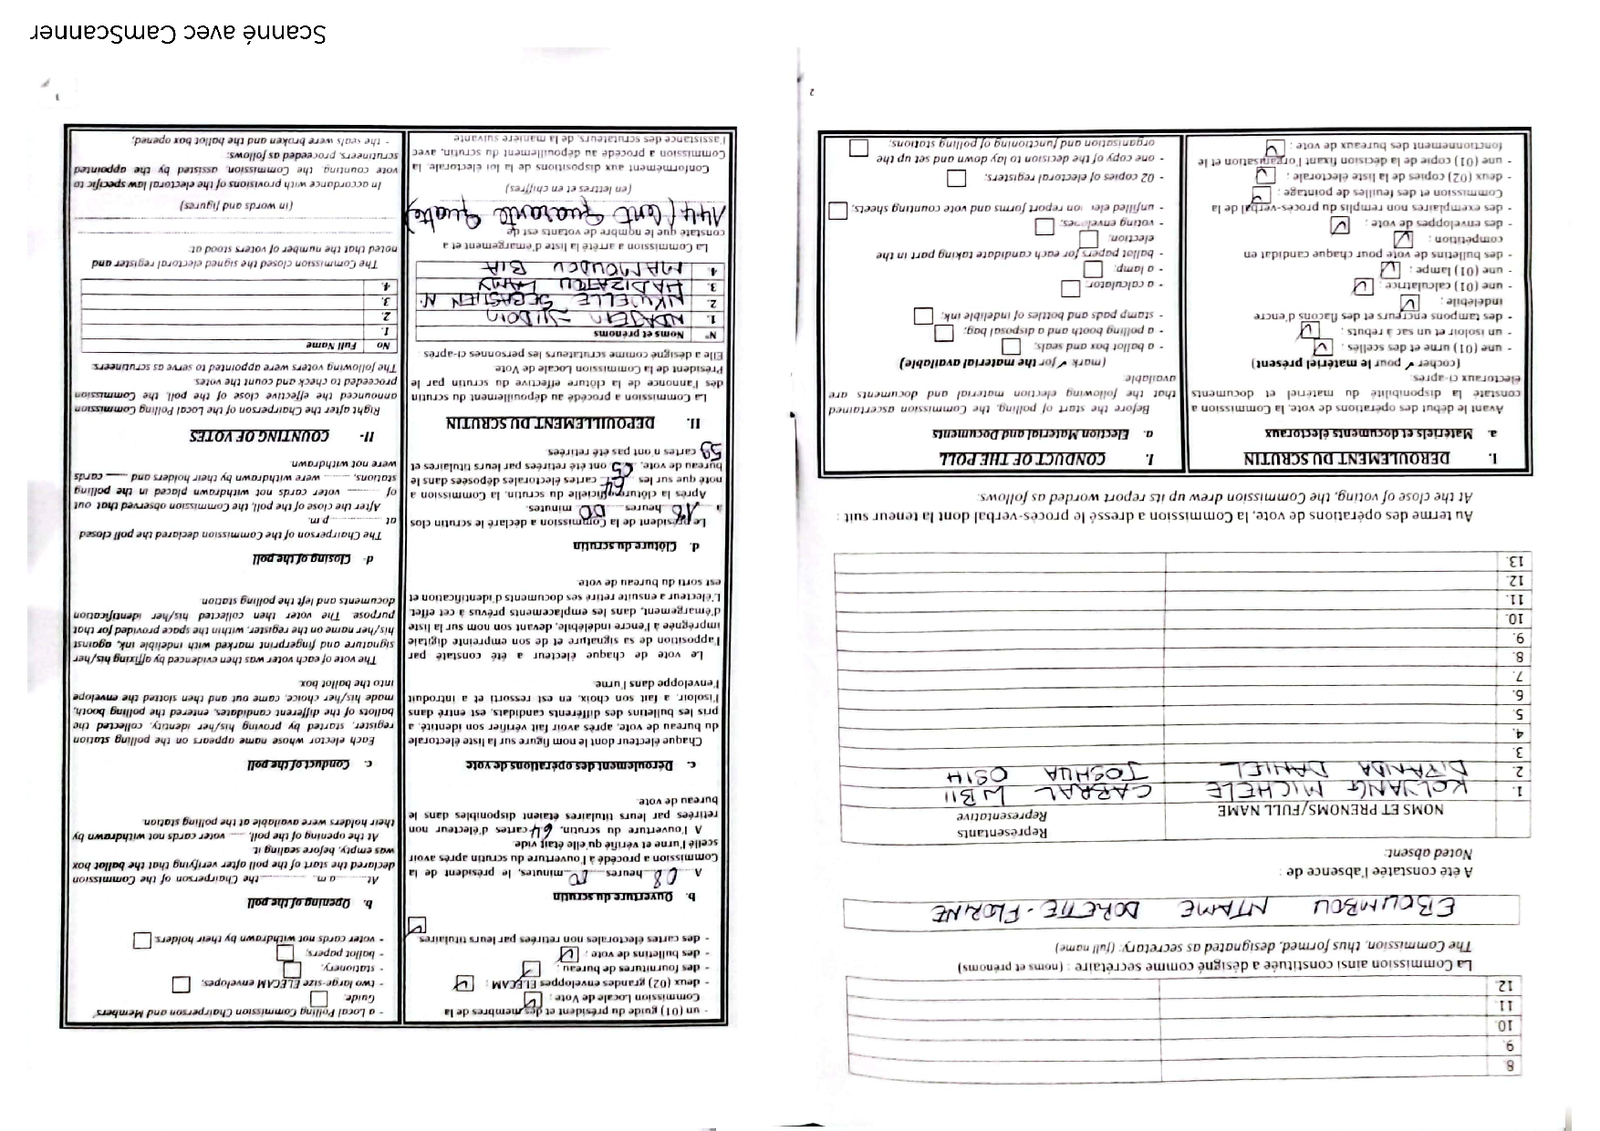 8.
9.
10.
11.
12.
La Commission ainsi constituée a désigné comme secrétaire : (noms et prénoms)
The Commission, thus formed, designated as secretary: (full name)
EBOUMBOU NTAME DORETTE-FLORINE
A été constatée l'absence de :
Noted absent:
NOMS ET PRENOMS/FULL NAME
Représentants
Representative
1. KOUANG MICHELE CABRAL LIBII
2. DIPANDA DANIEL JOSHUA OSIH
3.
4.
5.
6.
7.
8.
9.
10.
11.
12.
13.
Au terme des opérations de vote, la Commission a dressé le procès-verbal dont la teneur suit :
At the close of voting, the Commission drew up its report worded as follows:
I. DEROULEMENT DU SCRUTIN
a. Matériels et documents électoraux
Avant le début des opérations de vote, la Commission a
constaté la disponibilité du matériel et documents
électoraux ci-après:
(cocher ✓ pour le matériel présent)
- une (01) urne et des scellés :
- un isoloir et un sac à rebuts :
- des tampons encreurs et des flacons d'encre
indélébile :
- une (01) calculatrice :
- une (01) lampe :
- des bulletins de vote pour chaque candidat en
compétition :
- des enveloppes de vote :
- des exemplaires non remplis du procès-verbal de la
Commission et des feuilles de pointage :
- deux (02) copies de la liste électorale :
- une (01) copie de la décision fixant l'organisation et le
fonctionnement des bureaux de vote :
I. CONDUCT OF THE POLL
a. Election Material and Documents
Before the start of polling, the Commission ascertained
that the following election material and documents are
available:
(mark ✓ for the material available)
- a ballot box and seals;
- a polling booth and a disposal bag;
- stamp pads and bottles of indelible ink;
- a calculator;
- a lamp;
- ballot papers for each candidate taking part in the
election;
- voting envelopes;
- unfilled elec ion report forms and vote counting sheets;
- 02 copies of electoral registers;
- one copy of the decision to lay down and set up the
organisation and functioning of polling stations;
2
- un (01) guide du président et des membres de la
Commission Locale de Vote :
- deux (02) grandes enveloppes ELECAM :
- des fournitures de bureau :
- des bulletins de vote :
- des cartes électorales non retirées par leurs titulaires
b. Ouverture du scrutin
A 08 heures 00 minutes, le président de la
Commission a procédé à l'ouverture du scrutin après avoir
scellé l'urne et vérifié qu'elle était vide.
A l'ouverture du scrutin, 64 cartes d'électeur non
retirées par leurs titulaires étaient disponibles dans le
bureau de vote.
c. Déroulement des opérations de vote
Chaque électeur dont le nom figure sur la liste électorale
du bureau de vote, après avoir fait vérifier son identité, a
pris les bulletins des différents candidats, est entré dans
l'isoloir, a fait son choix, en est ressorti et a introduit
l'enveloppe dans l'urne.
Le vote de chaque électeur a été constaté par
l'apposition de sa signature et de son empreinte digitale
imprégnée à l'encre indélébile, devant son nom sur la liste
d'émargement, dans les emplacements prévus à cet effet.
L'électeur a ensuite retiré ses documents d'identification et
est sorti du bureau de vote.
d. Clôture du scrutin
Le président de la Commission a déclaré le scrutin clos
à 18 heures 00 minutes.
Après la clôture officielle du scrutin, la Commission a
noté que sur les 64 cartes électorales déposées dans le
bureau de vote, 05 ont été retirées par leurs titulaires et
59 cartes n'ont pas été retirées.
II. DEPOUILLEMENT DU SCRUTIN
La Commission a procédé au dépouillement du scrutin
dès l'annonce de la clôture effective du scrutin par le
Président de la Commission Locale de Vote.
Elle a désigné comme scrutateurs les personnes ci-après :
N° Noms et prénoms
1. NDAJEN JUIDOIN
2. NKWELLE SEBASTIEN N.
3. HADIZATOU LAMY
4. MAMOUDOU BIA
La Commission a arrêté la liste d'émargement et a
constaté que le nombre de votants est de
144 (Cent Quarante Quatre)
(en lettres et en chiffres)
Conformément aux dispositions de la loi électorale, la
Commission a procédé au dépouillement du scrutin, avec
l'assistance des scrutateurs, de la manière suivante
- a Local Polling Commission Chairperson and Members'
Guide.
- two large-size ELECAM envelopes;
- stationery;
- ballot papers;
- voter cards not withdrawn by their holders.
b. Opening of the poll
At ............a.m. ............the Chairperson of the Commission
declared the start of the poll after verifying that the ballot box
was empty, before sealing it.
At the opening of the poll, ........ voter cards not withdrawn by
their holders were available at the polling station.
c. Conduct of the poll
Each elector whose name appears on the polling station
register, started by proving his/her identity, collected the
ballots of the different candidates, entered the polling booth,
made his/her choice, came out and then slotted the envelope
into the ballot box.
The vote of each voter was then evidenced by affixing his/her
signature and fingerprint marked with indelible ink, against
his/her name on the register, within the space provided for that
purpose. The voter then collected his/her identification
documents and left the polling station.
d- Closing of the poll
The Chairperson of the Commission declared the poll closed
at ............... p.m.
After the close of the poll, the Commission observed that out
of ........ voter cards not withdrawn placed in the polling
stations, ........ were withdrawn by their holders and ........ cards
were not withdrawn.
II- COUNTING OF VOTES
Right after the Chairperson of the Local Polling Commission
announced the effective close of the poll, the Commission
proceeded to check and count the votes.
The following voters were appointed to serve as scrutineers:
No Full Name
1.
2.
3.
4.
The Commission closed the signed electoral register and
noted that the number of voters stood at:
(in words and figures)
In accordance with provisions of the electoral law specific to
vote counting, the Commission, assisted by the appointed
scrutineers, proceeded as follows:
- the seals were broken and the ballot box opened;
3
Scanné avec CamScanner